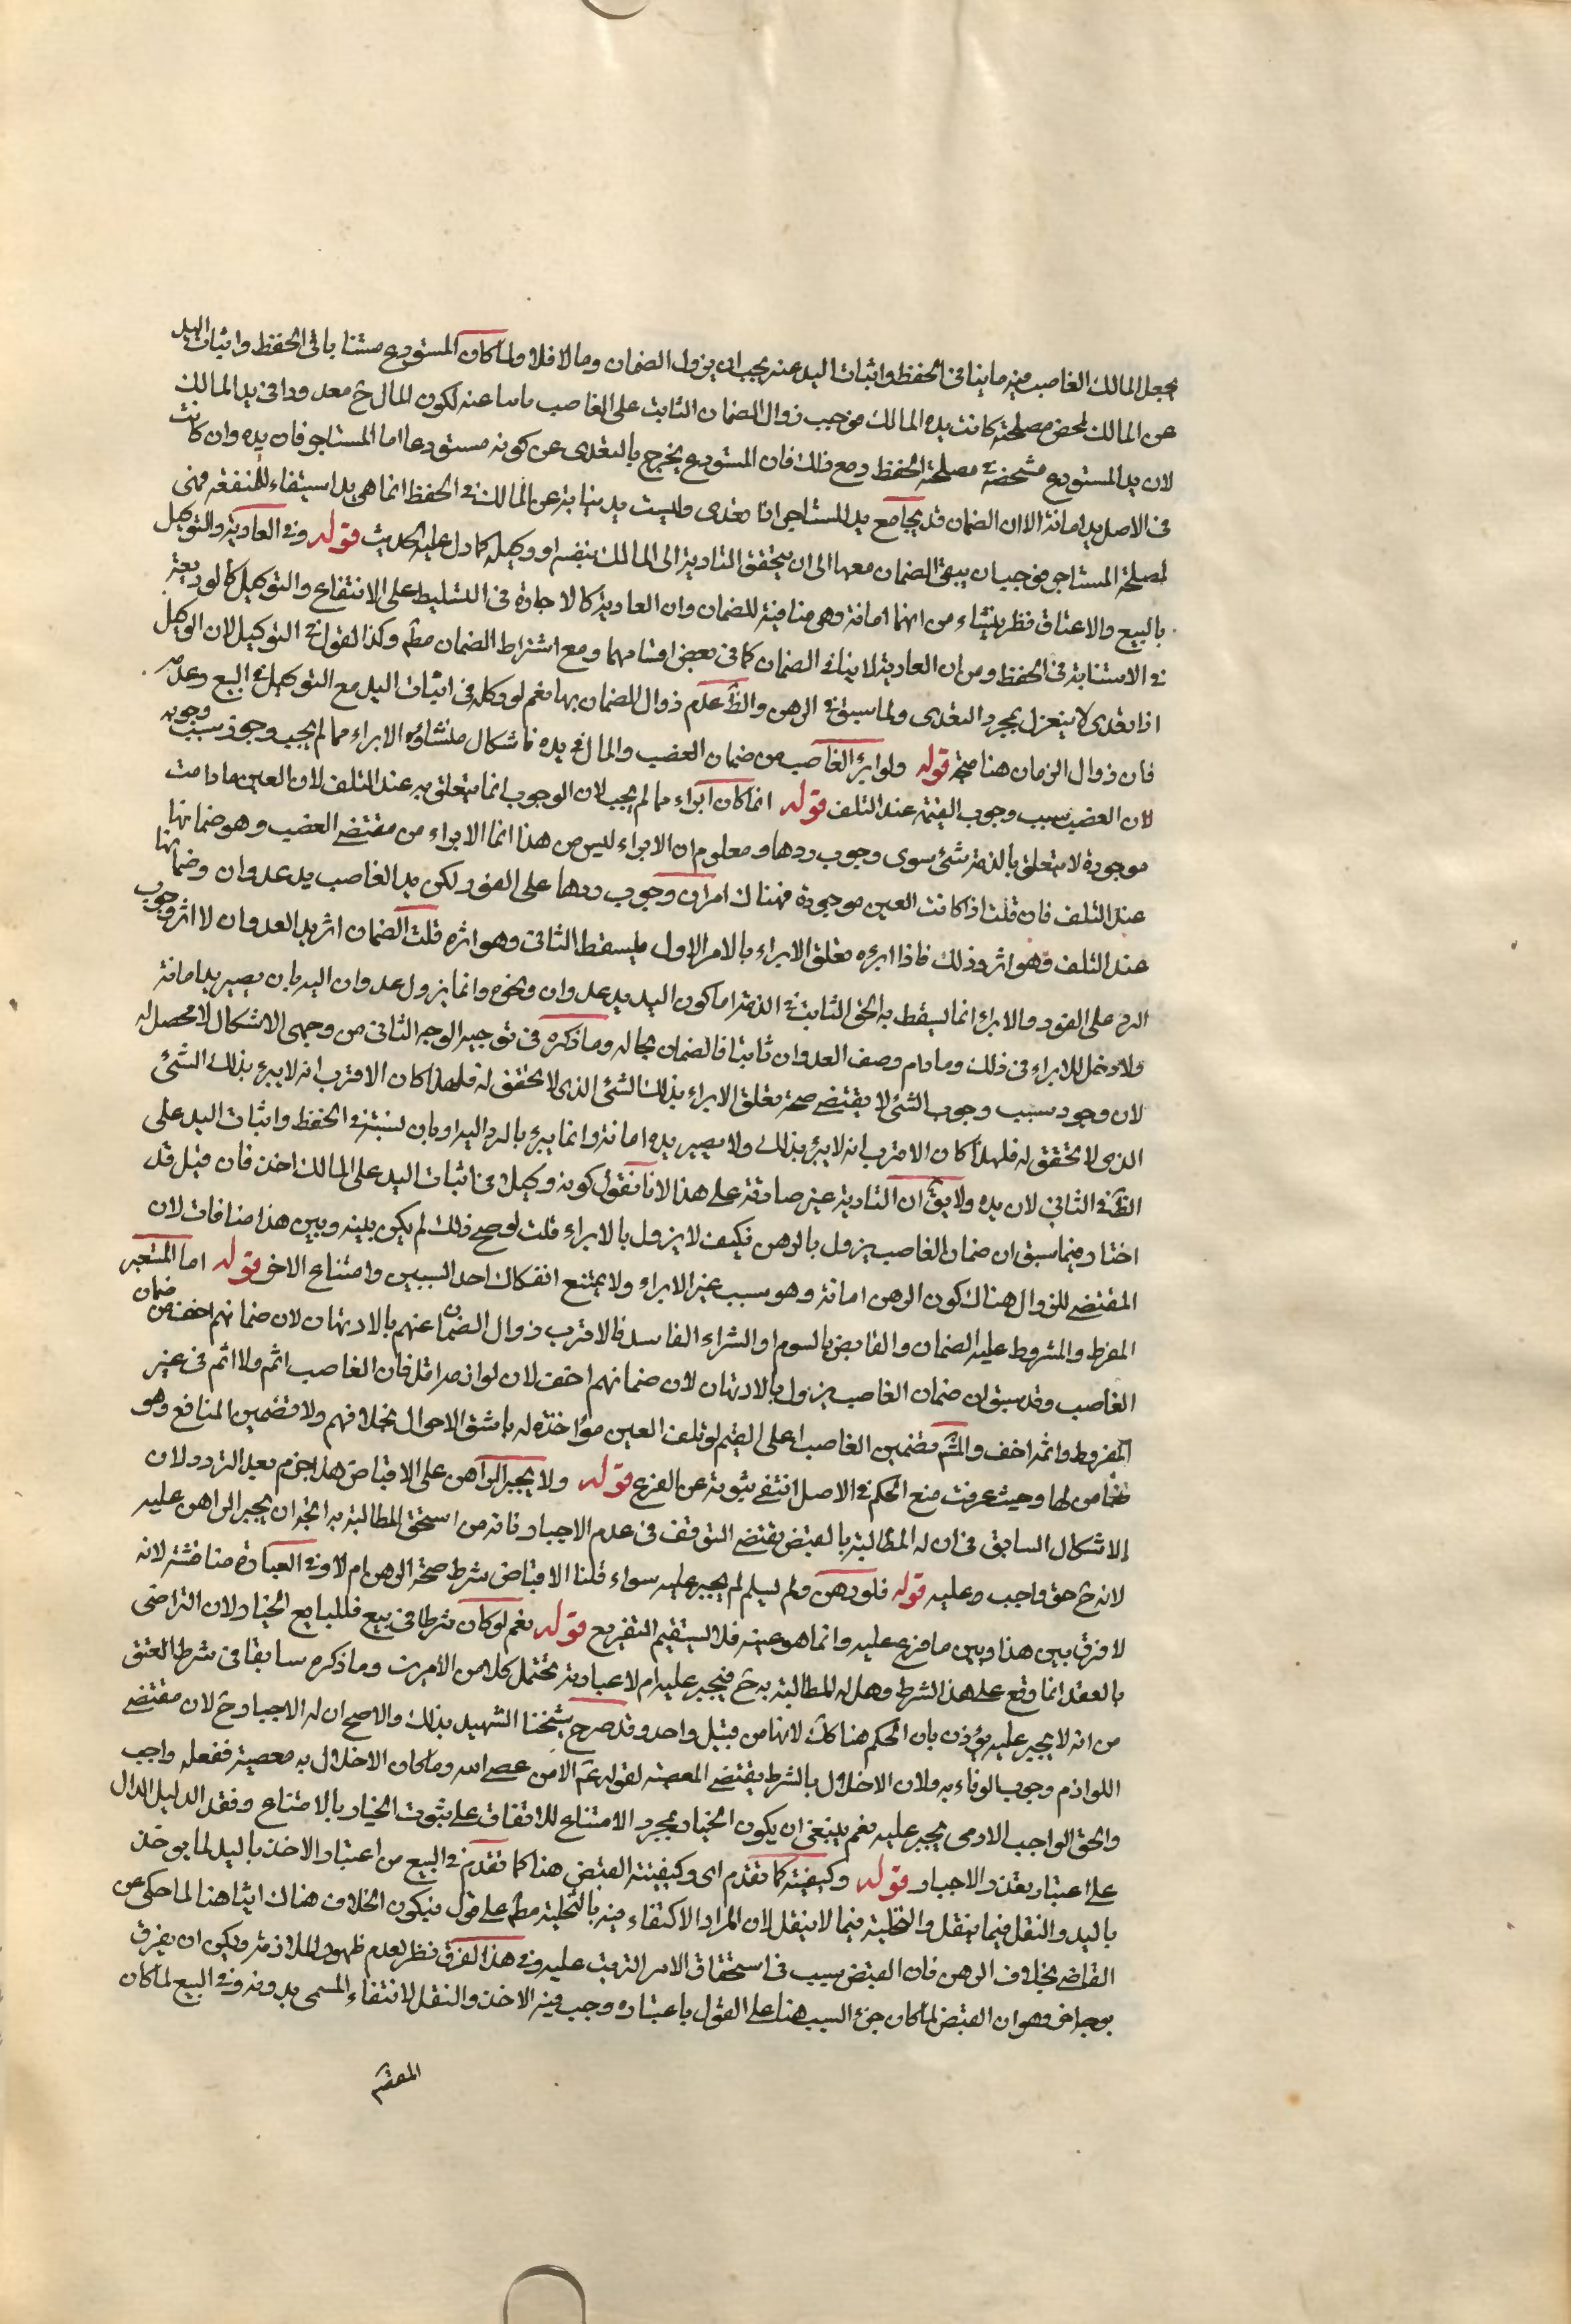 يجعل المالك الغاصب فيه ما ينافى الحفظ واثبات اليد عنه يجب ان يزول الضمان وما لا فلا ولما كان المستودع مستنابا فى الحفظ واثبات اليد
عن المالك لمحض مصلحته كانت يده يد المالك فوجب زوال الضمان الثابت على الغاصب عنه لكون المال ح معدودا فى يد المالك
لان يد المستودع متمحضة لمصلحة الحفظ ومع ذلك فان المستودع يخرج بالتعدى عن كونه مستودعا اما المستاجر فان يده وان كانت
فى الاصل يد امانة الا ان الضمان قد يجامع يد المستاجر اذا تعدى وليست يد نيابة عن المالك فى الحفظ انما هى يد استيفاء للمنفعة فهى
لمصلحة المستاجر فوجب ان يبقى الضمان معها الى ان يتحقق التادية الى المالك بنفسه او وكيله كما دل عليه الحديث قوله وفى العارية والتوكيل
بالبيع والاعتاق نظر ينشاء من انهما امانة وهى منافية للضمان وان العارية كالاجارة فى التسليط على الانتفاع والتوكيل كالوديعة
فى الاستنابة فى الحفظ ومن ان العارية لا ينافى الضمان كما فى بعض اقسامها ومع اشتراط الضمان مطم وكذا القول فى التوكيل لان الوكيل
اذا تعدى لا ينعزل بمجرد التعدى ولما سبق فى الرهن والظ عدم زوال الضمان بها نعم لو وكله فى اثبات اليد مع التوكيل فى البيع وعدمه
فان زوال الزمان هنا متجه قوله ولو ابرئ الغاصب من ضمان الغصب والمال فى يده فاشكال منشاؤه الابراء مما لم يجب ووجود سبب وجوبه
لان الغصب سبب وجوب القيمة عند التلف قوله انما كان ابراء مما لم يجب لان الوجوب انما يتعلق به عند التلف لان العين ما دامت
موجودة لا يتعلق بالذمة شئ سوى وجوب ردها ومعلوم ان الابراء ليس من هذا انما الابراء من مقتضى الغصب وهو ضمانها
عند التلف فان قلت اذا كانت العين موجودة فهناك امران وجوب ردها على الفور لكن يد الغاصب يد عدوان وضمانها
عند التلف وهو اثر وذلك فاذا ابرئه تعلق الابراء بالامر الاول فليسقط الثانى وهو اثره قلت الضمان اثر يد العدوان لا اثر وجوب
الرد على الفور والابراء انما يسقط به الحق الثابت فى الذمة اما كون اليد يد عدوان ونحوه وانما يزول عدوان اليد بان يصير يد امانة
ولا دخل للابراء فى ذلك وما دام وصف العدوان ثابتا فالضمان بحاله وما ذكره فى توجيه الوجه الثانى من وجهى الاشكال لا محصل له
لان وجود سبب وجوب الشئ لا يقتضى صحة تعلق الابراء بذلك الشئ الذى لا تحقق له فلهذا كان الاقرب انه لا يبرء بذلك الشئ
الذى لا تحقق له فلهذا كان الاقرب انه لا يبرء بذلك ولا يصير يده امانة وانما يبرء بالرد اليه او بان يستنيبه فى الحفظ واثبات اليد على
الظ فى الثانى لان يده ولا يق ان التادية غير صادقة على هذا لانا نقول كونه وكيلا فى اثبات اليد على المالك اخذ فان قيل قد
اختار فيما سبق ان ضمان الغاصب يزول بالرهن فكيف لا يزول بالابراء قلت لو صح ذلك لم يكن بينه وبين هذا منافات لان
المقتضى للزوال هناك كون الرهن امانة وهو سبب غير الابراء ولا يمتنع انفكاك احد السببين وامتناع الاخر قوله اما المستعير
المفرط والمشروط عليه الضمان والقابض بالسوم او الشراء الفاسد فالاقرب زوال الضمان عنهم بالارتهان لان ضمانهم اخف من ضمان
الغاصب وقد سبق ان ضمان الغاصب يزول بالارتهان لان ضمانهم اخف لان لوازمه اقل فان الغاصب اثم ولا اثم فى غير
المفرط واثمه اخف والمشه تضمين الغاصب اعلى القيم لو تلف العين مؤاخذة له باشق الاحوال بخلافهم ولا تضمين المنافع وهو
ضامن لها وحيث عرفت منع الحكم فى الاصل انتفى ثبوته عن الفرع قوله ولا يجبر الراهن على الاقباض هذا جزم بعد التردد لان
الاشكال السابق فى ان له المطالبة بالقبض يقتضى التوقف فى عدم الاجبار فانه من استحق المطالبة به اتجه ان يجبر الراهن عليه
لانه ح حق واجب وعليه قوله فلو رهن ولم يسلم لم يجبر عليه سواء قلنا الاقباض شرط صحة الرهن ام لا وفى العبارة مناقشة لانه
لا فرق بين هذا وبين ما فرع عليه وانما هو عينه فلا يستقيم التفريع قوله نعم لو كان شرطا فى بيع فللبايع الخيار لان التراضى
بالعقد انما وقع على هذا الشرط وهل له المطالبة به ح فيجبر عليه ام لا عبارته تحتمل كلا من الامرين وما ذكره سابقا فى شرط العتق
من انه لا يجبر عليه يؤذن بان الحكم هنا كك لانهما من قبيل واحد وقد صرح شيخنا الشهيد بذلك والاصح ان له الاجبار ح لان مقتضى
اللوازم وجوب الوفاء به ولان الاخلال بالشرط يقتضى المعصية لقوله عم الا من عصى الله وما كان الاخلال به معصية ففعله واجب
والحق الواجب الادمى يجبر عليه نعم ينبغى ان يكون الخيار بمجرد الامتناع للاتفاق على ثبوت الخيار بالامتناع وفقد الدليل الدال
على اعتبار تعذر الاجبار قوله وكيفيته كما تقدم اى وكيفيته القبض هنا كما تقدم فى البيع من اعتبار الاخذ باليد لما يوخذ
باليد والنقل فيما ينقل والتخلية فيما لا ينقل لان المراد الاكتفاء فيه بالتخلية مطم على قول فيكون الخلاف هناك ايتا هنا لما حكى عن
القاضى بخلاف الرهن فان القبض سبب فى استحقاق الامر المترتب عليه وفى هذا الفرق نظر لعدم ظهور الملازمة ويمكن ان يفرق
بوجه اخر وهو ان القبض لما كان جزء السبب هنا على القول باعتباره وجب فيه الاخذ والنقل لانتفاء المسمى بدونه وفى البيع لما كان